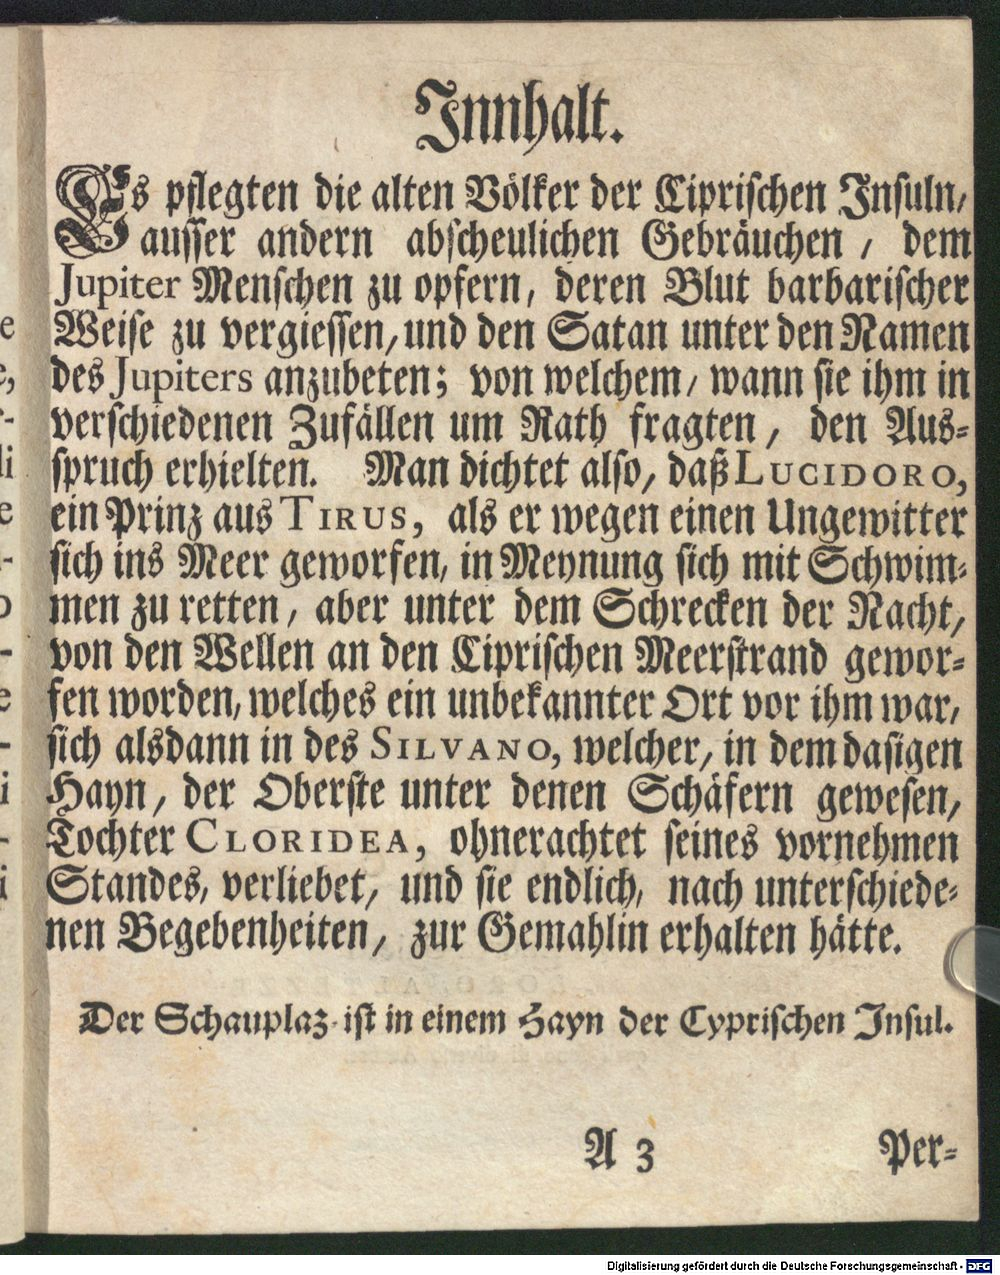 Innhalt.
Es pflegten die alten Völker der Ciprischen Insuln/
ausser andern abscheulichen Gebräuchen / dem
Jupiter Menschen zu opfern, deren Blut barbarischer
Weise zu vergiessen, und den Satan unter den Namen
des Jupiters anzubeten; von welchem / wann sie ihm in
verschiedenen Zufällen um Rath fragten, den Aus-
spruch erhielten. Man dichtet also, daß LUCIDORO,
ein Prinz aus TIRUS, als er wegen einen Ungewitter
sich ins Meer geworfen, in Meynung sich mit Schwim-
men zu retten, aber unter dem Schrecken der Nacht,
von den Wellen an den Ciprischen Meerstrand gewor-
fen worden, welches ein unbekannter Ort vor ihm war,
sich alsdann in des SILVANO, welcher, in dem dasigen
Hayn, der Oberste unter denen Schäfern gewesen,
Tochter CLORIDEA, ohnerachtet seines vornehmen
Standes, verliebet, und sie endlich, nach unterschiede-
nen Begebenheiten, zur Gemahlin erhalten hätte.
Der Schauplaz ist in einem Hayn der Cyprischen Insul.
A 3 Per-
Digitalisierung gefördert durch die Deutsche Forschungsgemeinschaft - DFG